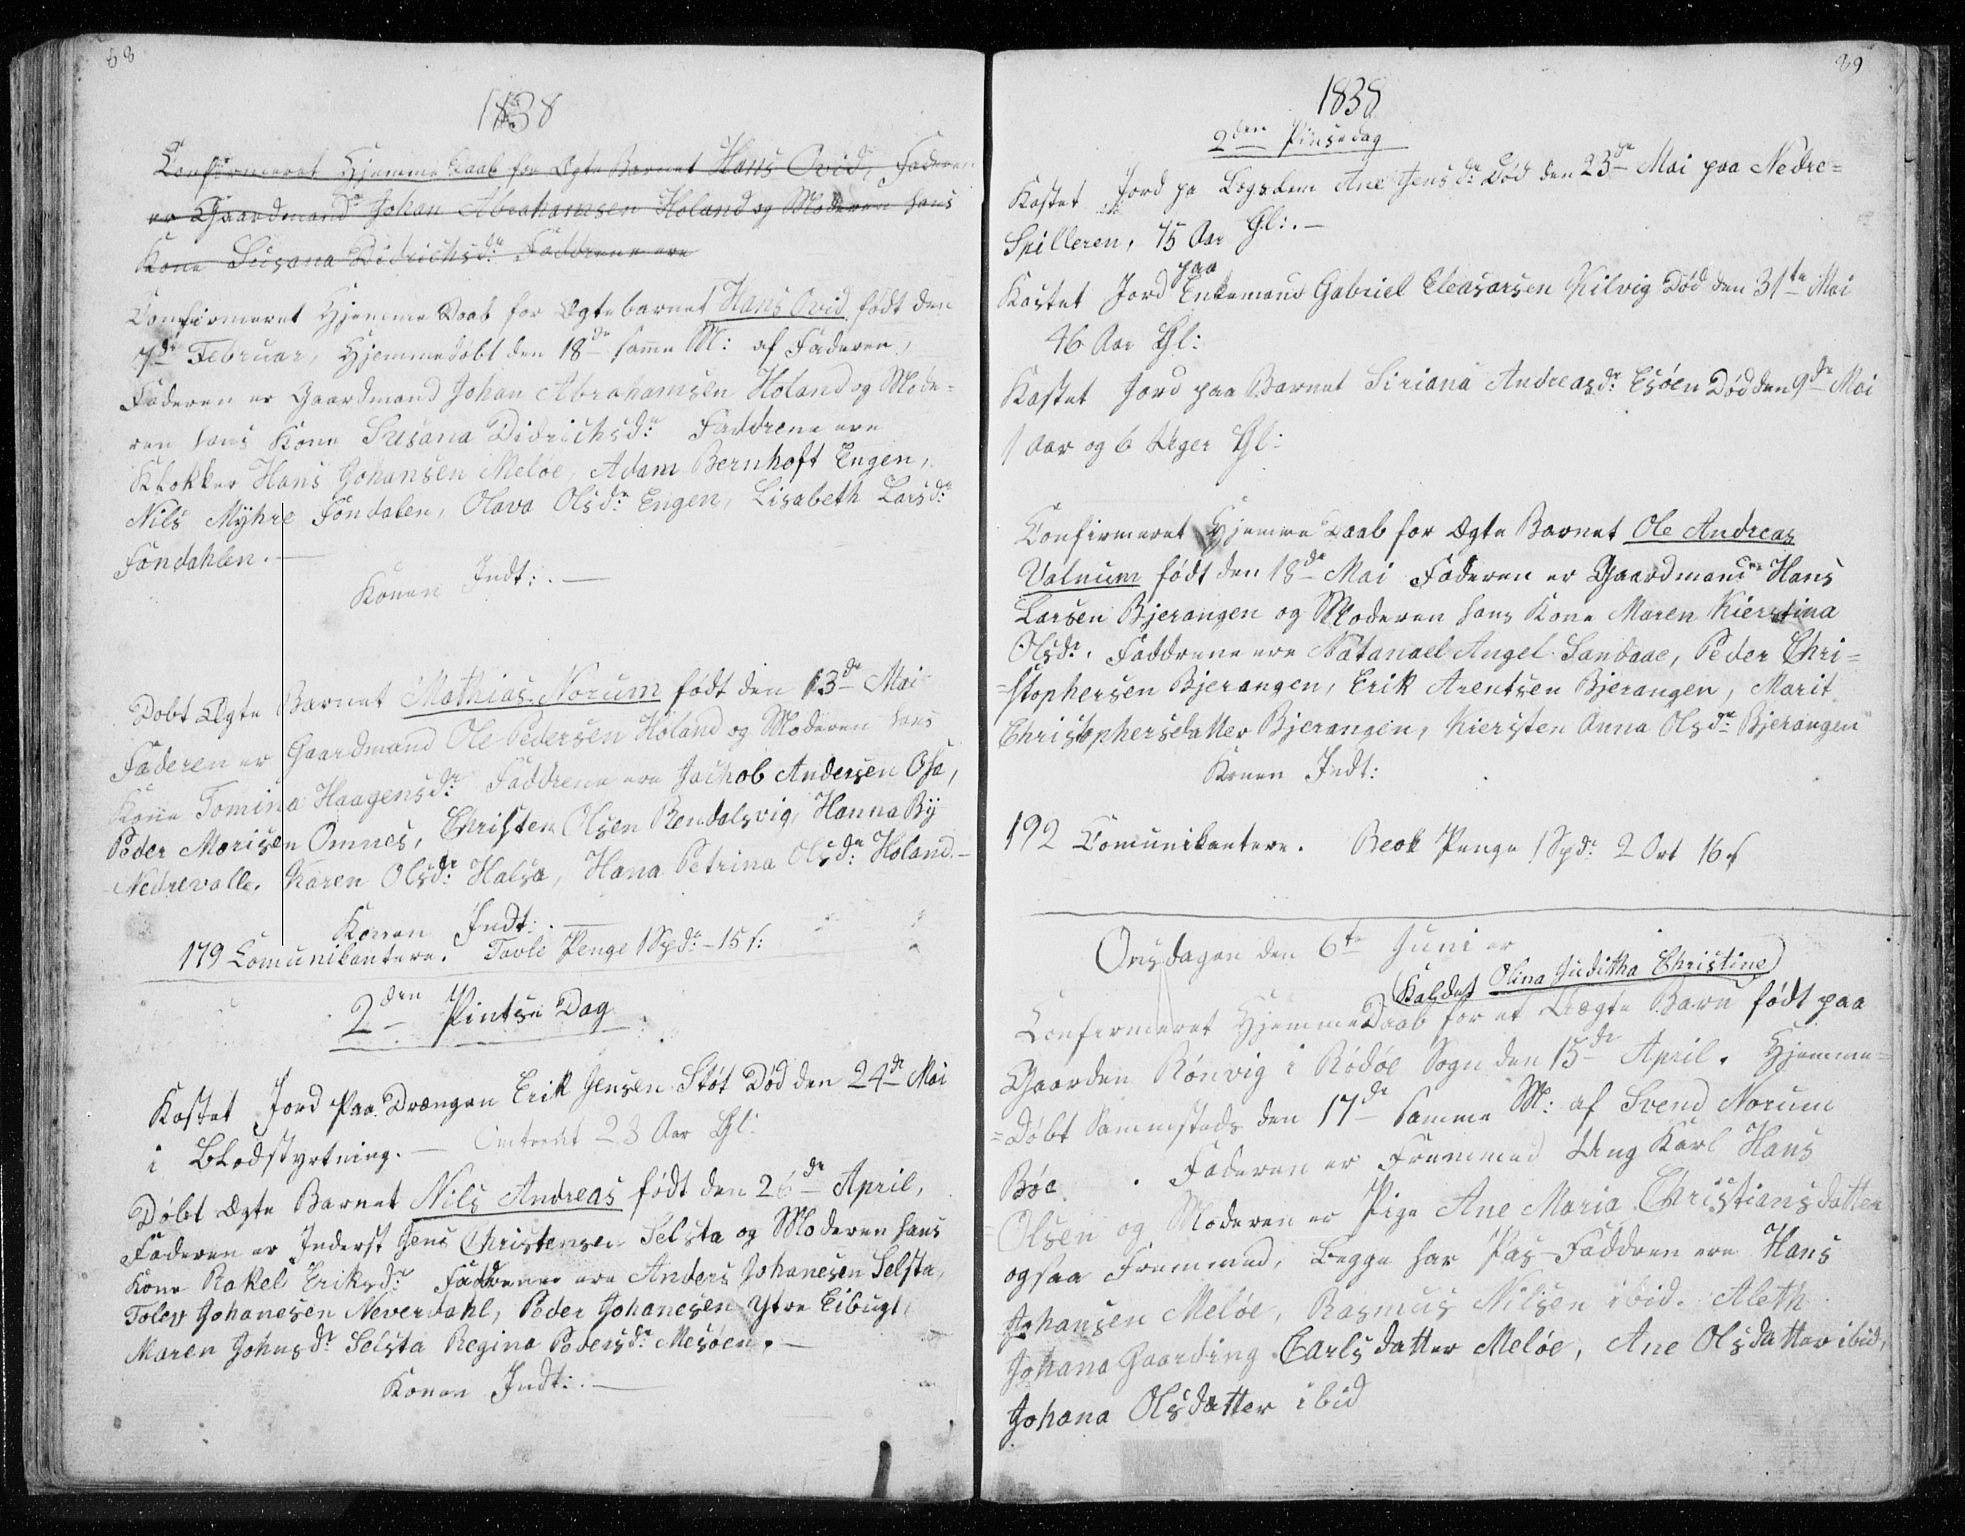 88
1838
Confirmeret Hjemme Daab for Ægte Barnet Hans Ovid, Faderen
er Gaardmand Johan Abrahamsen Holand og Moderen hans
Kone Susana Didrichsdr: Faddrene ere
Confirmeret Hjemme Daab for Ægtebarnet Hans Ovid født den
7de Februar, Hjemmedøbt den 18de samme M: af Faderen,
Faderen er Gaardmand Johan Abrahamsen Holand og Mode=
ren hans Kone Susana Didrichsdr: Faddrene ere
Klokker Hans Johansen Meløe, Adam Bernhoft Engen,
Nils Myhre Fondalen, Olava Olsdr: Engen, Lisabeth Larsdr:
Fondahlen. —
Konen Indt: . —
Døbt Ægte Barnet Mathias Norum født den 13de Mai
Faderen er Gaardmand Ole Pedersen Holand og Moderen hans
Kone Tomina Haagensdr: Faddrene ere Jachob Andersen Osa,
Peder Morisen Omnes, Christen Olsen Rendalsvig, Hanna By
Nedrevalle, Karen Olsdr: Halsa, Hana Petrina Olsdr: Holand. —
Konen Indt: . —
179 Comunikantere. Tavle Penge 1 Spdr: – 15 s:
2den Pintse Dag
Kastet Jord paa Drængen Erik Jensen Støt Død den 24de Mai
i Blodstyrtning. — Omtrent 23 Aar Gl:
Døbt Ægte Barnet Nils Andreas født den 26de April,
Faderen er Inderst Jens Christensen Selsta og Moderen hans
Kone Rakel Eriksdr: Faddrene ere Anders Johanesen Selsta,
Tolev Johanesen Neverdahl, Peder Johanesen Ytre Eibugt,
Maren Johnsdr Selsta Regina Pedersdr: Mesøen. —
Konen Indt: . —
89
1838
2den Pinsedag
Kastet Jord pa Lægslem Ane Jensdr: Død den 23de Mai paa Nedre=
Spilleren, 75 Aar Gl: . —
Kastet Jord paa Enkemand Gabriel Eleasarsen Kilvig Død den 31te Mai
46 Aar Gl:
Kastet Jord paa Barnet Siriana Andreasdr: Esøen Død den 9de Mai
1 Aar og 6 Uger Gl:
Confirmeret Hjemme Daab for Ægte Barnet Ole Andreas
Valnum født den 18de Mai Faderen er Gaardmand Hans
Larsen Bjerangen og Moderen hans Kone Maren Kierstina
Olsdr. Faddrene ere Natanael Angel Sandaae, Peder Chri=
=stophersen Bjerangen, Erik Arentsen Bjerangen, Marit
Christophersdatter Bjerangen, Kiersten Anna Olsdr: Bjerangen
Konen Indt:
192 Comunikantere. Beok Penge 1 Spdr: 2 Ort 16 s
Onsdagen den 6te Juni er
(Kaldet Olina Juditha Christine)
Confirmeret HjemmeDaab for et Uægte Barn født paa
Gaarden Rønvig i Rødøe Sogn den 15de April. Hjemme=
=døbt Sammesteds den 17de samme M: af Svend Norum
Bøe. Faderen er Fremmed Ung Karl Hans
Olsen og Moderen er Pige Ane Maria Christiansdatter
ogsaa Fremmed, Begge har Pas – Faddren ere Hans
Johansen Meløe, Rasmus Nilsen ibid. Aleth
Johana Gaarding Carlsdatter Meløe, Ane Olsdatter ibid,
Johana Olsdatter ibid